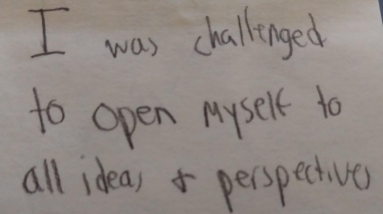 I was challenged
to open myself to
all ideas & perspectives